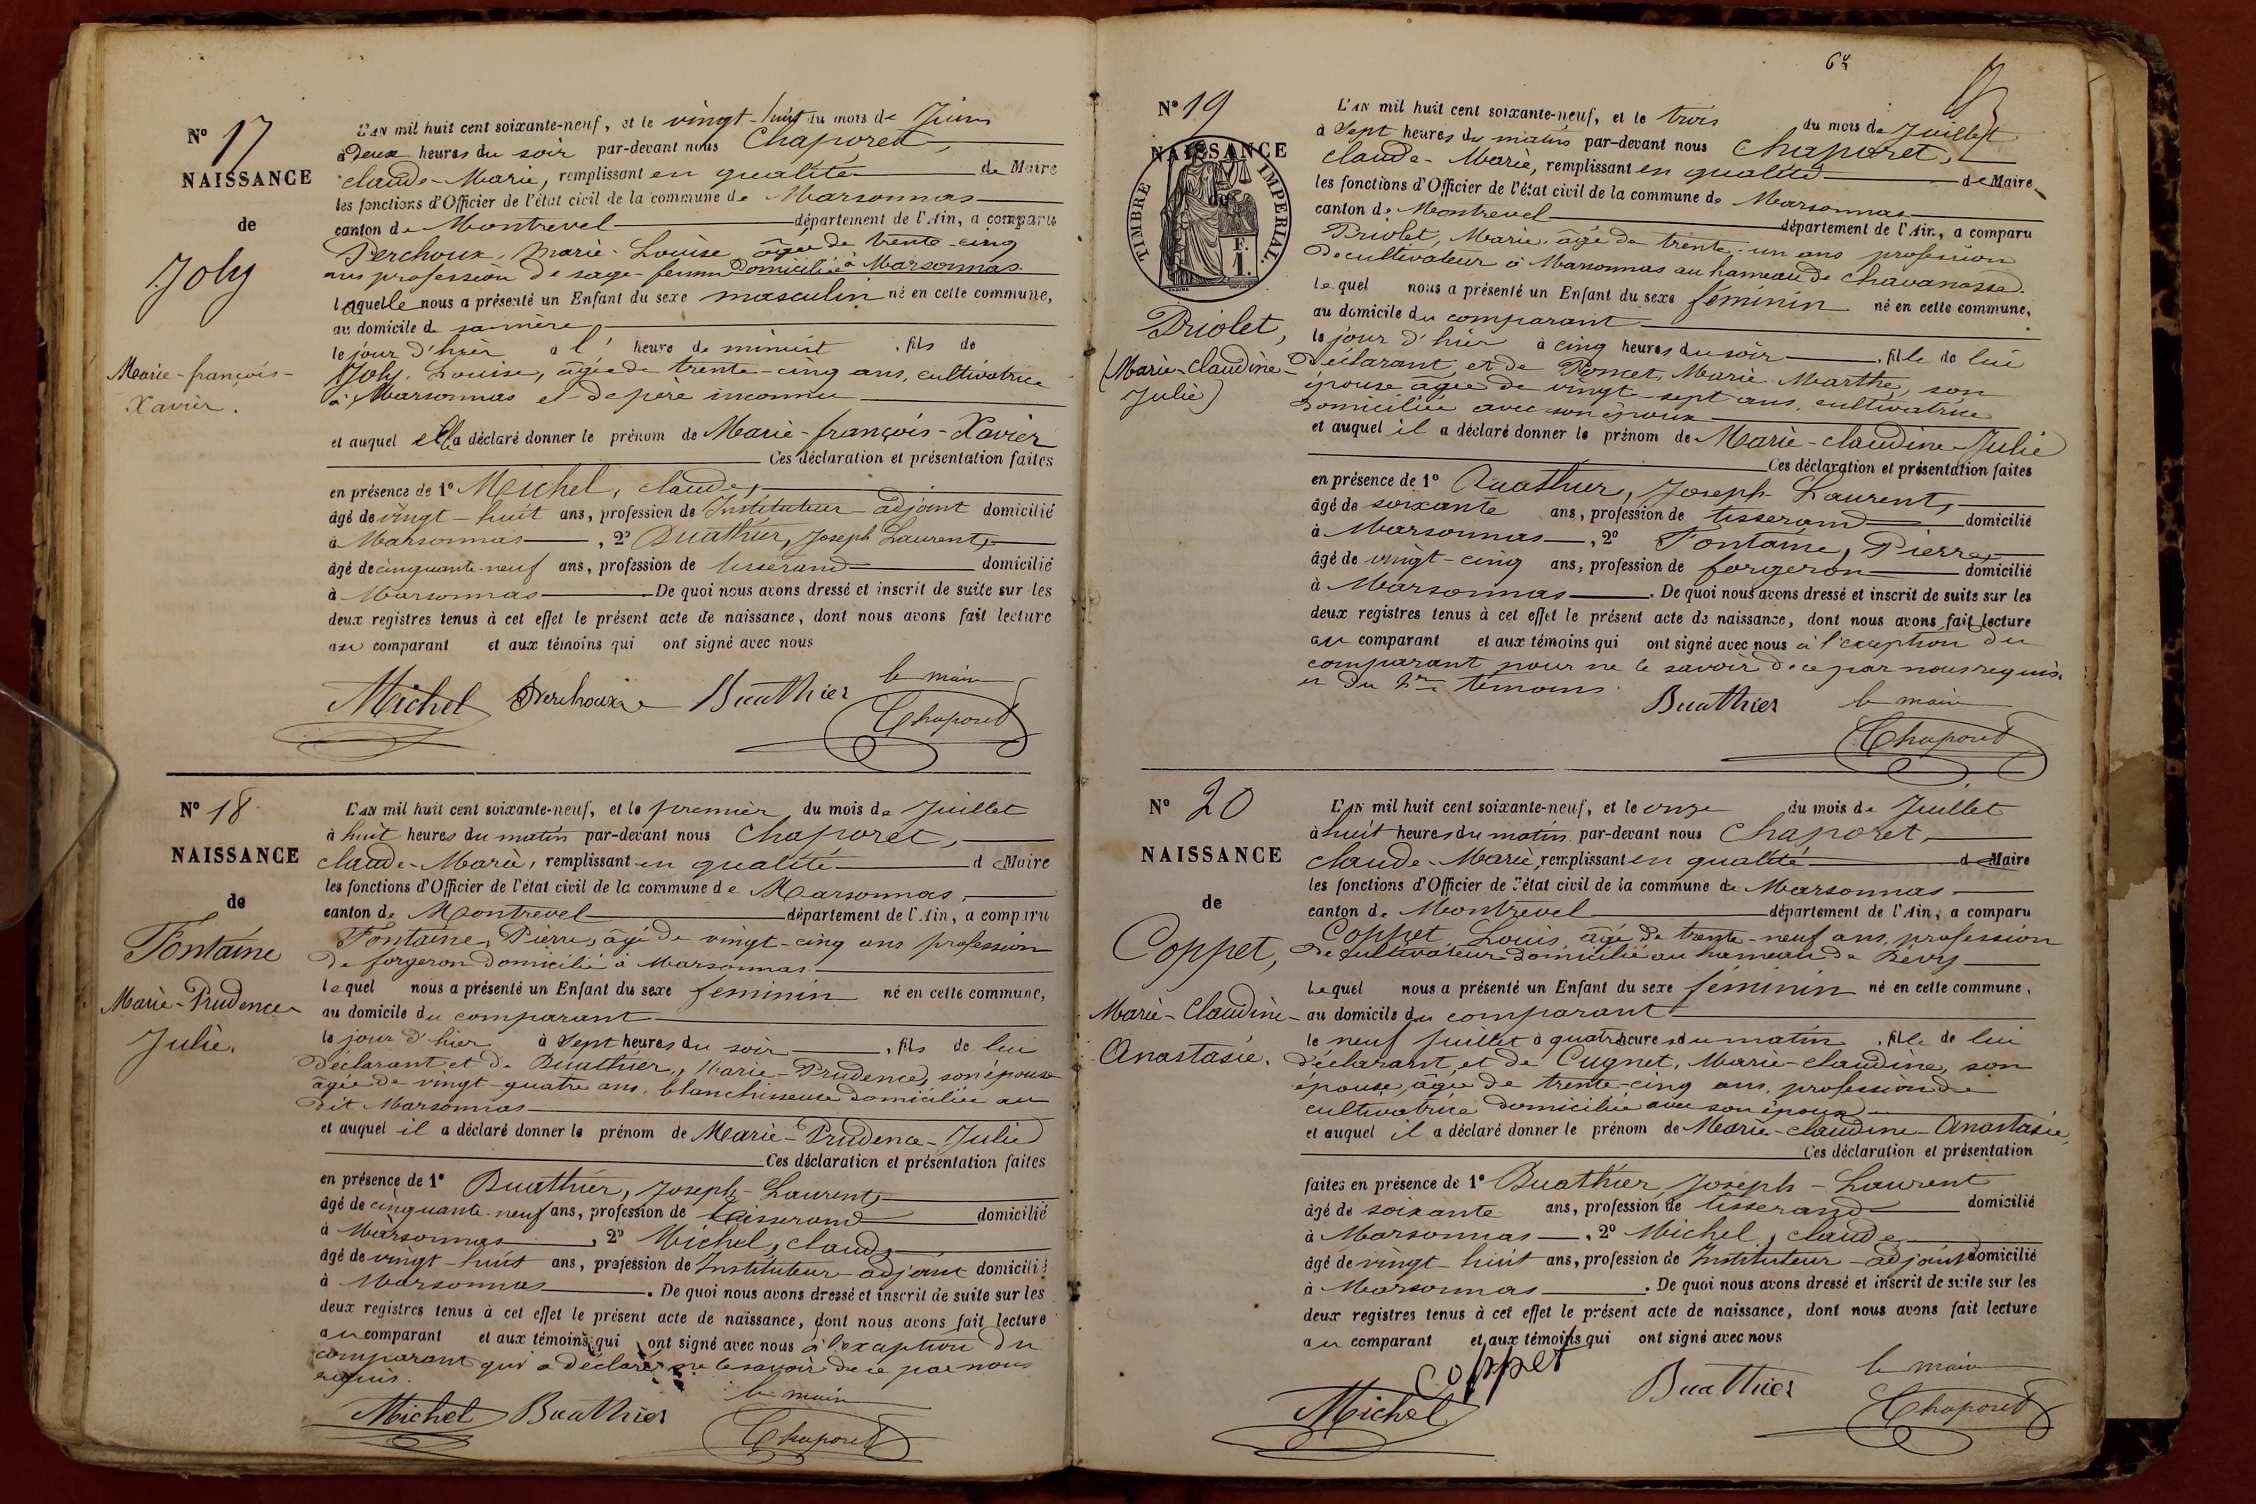 N° 17
NAISSANCE
de
Joly
Marie-françois-
Xavier.
L'AN mil huit cent soixante-neuf, et le vingt-huit du mois de Juin
à deux heures du soir par-devant nous Chaporet,
claude-Marie, remplissant en qualité de Maire
les fonctions d'Officier de l'état civil de la commune de Marsonnas
canton de Montrevel département de l'Ain, a comparu
Perchoux, Marie-Louise âgée de trente-cinq
ans profession de sage-femme domiciliée à Marsonnas.
laquelle nous a présenté un Enfant du sexe masculin né en cette commune,
au domicile de sa mère,
le jour d'hièr à l' heure de minuit, fils de
Joly, Louise, âgée de trente-cinq ans, cultivatrice
à Marsonnas et de père inconnu
et auquel elle a déclaré donner le prénom de Marie-françois-Xavier
Ces déclaration et présentation faites
en présence de 1° Michel, claude,
âgé de vingt-huit ans, profession de Instituteur-adjoint domicilié
à Marsonnas, 2° Buathier, Joseph Laurent,
âgé de cinquante-neuf ans, profession de tisserand domicilié
à Marsonnas De quoi nous avons dressé et inscrit de suite sur les
deux registres tenus à cet effet le présent acte de naissance, dont nous avons fait lecture
au comparant et aux témoins qui ont signé avec nous
le maire
Michel Perchoux Buathier Chaporet
N° 18
NAISSANCE
de
Fontaine
Marie-Prudence-
Julie.
L'AN mil huit cent soixante-neuf, et le premier du mois de Juillet
à huit heures du matin par-devant nous Chaporet,
claude-Marie, remplissant en qualité d Maire
les fonctions d'Officier de l'état civil de la commune de Marsonnas,
canton de Montrevel département de l'Ain, a comparu
Fontaine, Pierre, âgé de vingt-cinq ans profession
de forgeron domicilié à Marsonnas.
lequel nous a présenté un Enfant du sexe féminin né en cette commune,
au domicile du comparant
le jour d'hier à Sept heures du soir, fils de lui
déclarant et de Buathier, Marie-Prudence, son épouse
âgée de vingt-quatre ans, blanchisseuse domiciliée au
dit Marsonnas
et auquel il a déclaré donner le prénom de Marie-Prudence-Julie
Ces déclaration et présentation faites
en présence de 1° Buathier, Joseph-Laurent,
âgé de cinquante-neuf ans, profession de tisserand domicilié
à Marsonnas, 2° Michel, claude
âgé de vingt-huit ans, profession de Instituteur-adjoint domicilié
à Marsonnas. De quoi nous avons dressé et inscrit de suite sur les
deux registres tenus à cet effet le présent acte de naissance, dont nous avons fait lecture
au comparant et aux témoins qui ont signé avec nous à l'exception du
comparant qui a déclaré ne le savoir de ce par nous
requis.
le maire
Michel Buathier Chaporet
N° 19
NAISSANCE
de
TIMBRE IMPERIAL.
1 F.
Priolet,
(Marie-Claudine-
Julie)
L'AN mil huit cent soixante-neuf, et le trois du mois de Juillet
à Sept heures du matin par-devant nous Chaporet,
claude-Marie, remplissant en qualité de Maire
les fonctions d'Officier de l'état civil de la commune de Marsonnas
canton de Montrevel département de l'Ain, a comparu
Priolet, Marie, âgé de trente-un ans profession
de cultivateur à Marsonnas au hameau de Chavanosse.
lequel nous a présenté un Enfant du sexe féminin né en cette commune,
au domicile du comparant
le jour d'hier à cinq heures du soir, fille de lui
déclarant et de Poncet, Marie Marthe, son
épouse âgée de vingt-sept ans, cultivatrice
domiciliée avec son époux
et auquel il a déclaré donner le prénom de Marie-claudine-Julie
Ces déclaration et présentation faites
en présence de 1° Buathier, Joseph-Laurent,
âgé de soixante ans, profession de tisserand domicilié
à Marsonnas, 2° Fontaine, Pierre,
âgé de vingt-cinq ans, profession de forgeron domicilié
à Marsonnas. De quoi nous avons dressé et inscrit de suite sur les
deux registres tenus à cet effet le présent acte de naissance, dont nous avons fait lecture
au comparant et aux témoins qui ont signé avec nous à l'exception du
comparant pour ne le savoir de ce par nous requis.
et du 2me témoins.
Buathier le maire
Chaporet
N° 20
NAISSANCE
de
Coppet,
Marie-Claudine-
Anastasie.
L'AN mil huit cent soixante-neuf, et le onze du mois de Juillet
à huit heures du matin par-devant nous Chaporet,
claude-Marie, remplissant en qualité d Maire
les fonctions d'Officier de l'état civil de la commune de Marsonnas
canton de Montrevel département de l'Ain, a comparu
Coppet Louis, âgé de trente-neuf ans, profession
de cultivateur domicilié au hameau de Bévy
lequel nous a présenté un Enfant du sexe féminin né en cette commune,
au domicile du comparant
le neuf Juillet à quatre heures du matin, fille de lui
déclarant et de Cugnet, Marie-claudine, son
épouse, âgée de trente-cinq ans, profession de
cultivatrice domiciliée avec son époux
et auquel il a déclaré donner le prénom de Marie-claudine-Anastasie,
Ces déclaration et présentation
faites en présence de 1° Buathier, Joseph-Laurent
âgé de soixante ans, profession de tisserand domicilié
à Marsonnas, 2° Michel, claude
âgé de vingt-huit ans, profession de Instituteur-adjoint domicilié
à Marsonnas. De quoi nous avons dressé et inscrit de suite sur les
deux registres tenus à cet effet le présent acte de naissance, dont nous avons fait lecture
au comparant et aux témoins qui ont signé avec nous
coppet le maire
Michel Buathier Chaporet